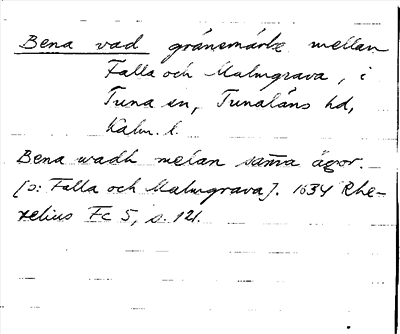 Bena vad gränsmärke mellan
Falla och Malmgrava, i
Tuna sn, Tunaläns hd,
Kalm. l.
Bena wadh melan sama ägor.
[ɔ: Falla och Malmgrava]. 1634 Rhe-
zelius Fc 5, s. 121.